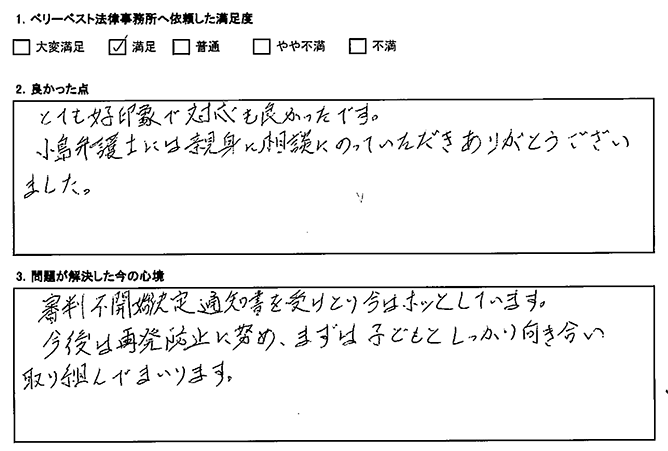 1. ベリーベスト法律事務所へ依頼した満足度
□ 大変満足 ☑ 満足 □ 普通 □ やや不満 □ 不満
2. 良かった点
とても好印象で対応も良かったです。
小島弁護士には親身に相談にのっていただきありがとうござい
ました。
3. 問題が解決した今の心境
審判不開始決定通知書を受けとり今はホッとしています。
今後は再発防止に努め、まずは子どもとしっかり向き合い
取り組んでまいります。